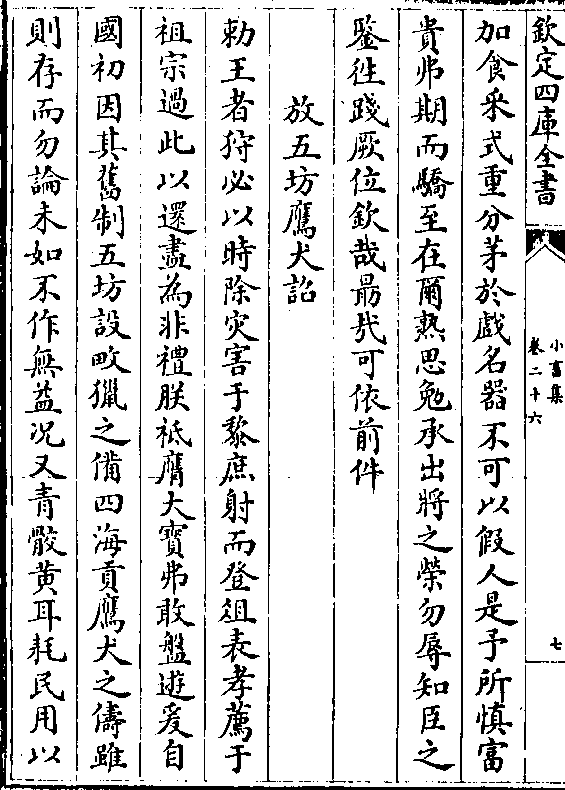 欽定四庫全書
小畜集
卷二十六
七
加食采式重分茅於戲名器不可以假人是予所慎富
貴弗期而驕至在爾熟思勉承出將之榮勿辱知臣之
鑒徃踐厥位欽哉朂㢤可依前件
放五坊鷹犬詔
勅王者狩必以時除灾害于黎庶射而登俎表孝薦于
祖宗過此以還盡為非禮朕祗膺大寶弗敢盤遊爰自
國初因其舊制五坊設畋獵之備四海貢鷹犬之儔雖
則存而勿論未如不作無益况又青骹黄耳耗民用以